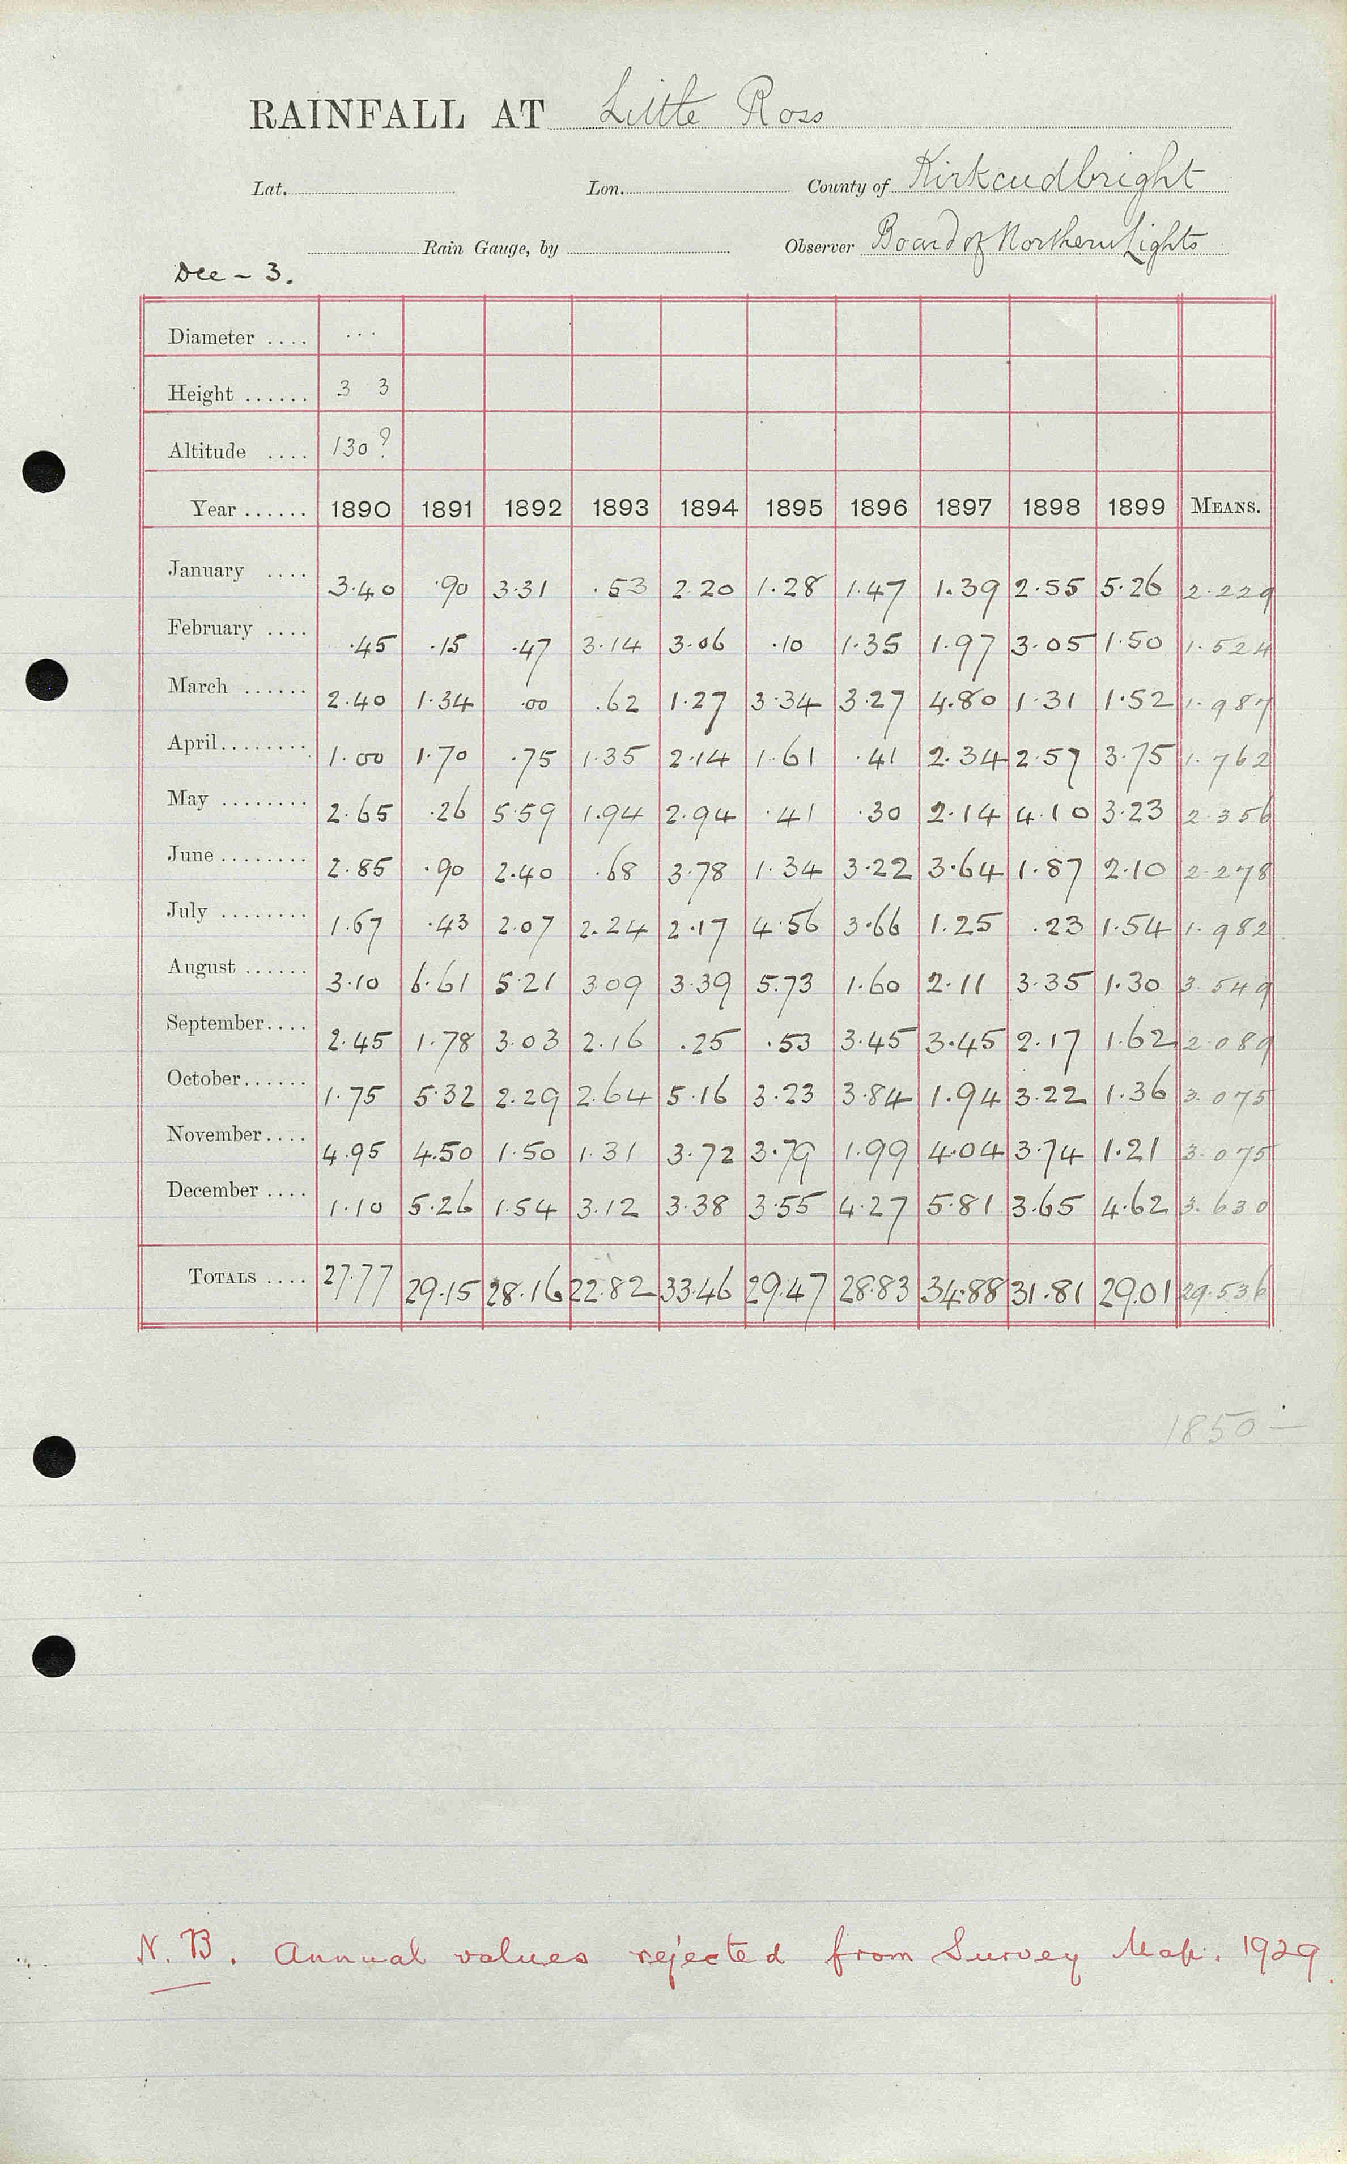 RAINFALL AT Little Ross
Lat. Lon. County of Kirkcudbright
Rain Gauge, by Observer Board of Northern Lights
Dee - 3.
Diameter .... ...
Height ...... 3 3
Altitude .... 130?
Year ...... 1890 1891 1892 1893 1894 1895 1896 1897 1898 1899 MEANS.
January .... 3.40 .90 3.31 .53 2.20 1.28 1.47 1.39 2.55 5.26 2.229
February .... .45 .15 .47 3.14 3.06 .10 1.35 1.97 3.05 1.50 1.524
March ...... 2.40 1.34 .00 .62 1.27 3.34 3.27 4.80 1.31 1.52 1.987
April........ 1.00 1.70 .75 1.35 2.14 1.61 .41 2.34 2.57 3.75 1.762
May ........ 2.65 .26 5.59 1.94 2.94 .41 .30 2.14 4.10 3.23 2.356
June ........ 2.85 .90 2.40 .68 3.78 1.34 3.22 3.64 1.87 2.10 2.278
July ........ 1.67 .43 2.07 2.24 2.17 4.56 3.66 1.25 .23 1.54 1.982
August ...... 3.10 6.61 5.21 3.09 3.39 5.73 1.60 2.11 3.35 1.30 3.549
September.... 2.45 1.78 3.03 2.16 .25 .53 3.45 3.45 2.17 1.62 2.089
October...... 1.75 5.32 2.29 2.64 5.16 3.23 3.84 1.94 3.22 1.36 3.075
November.... 4.95 4.50 1.50 1.31 3.72 3.79 1.99 4.04 3.74 1.21 3.075
December .... 1.10 5.26 1.54 3.12 3.38 3.55 4.27 5.81 3.65 4.62 3.630
TOTALS .... 27.77 29.15 28.16 22.82 33.46 29.47 28.83 34.88 31.81 29.01 29.536
1850 -
N.B. Annual values rejected from Survey Map. 1929.